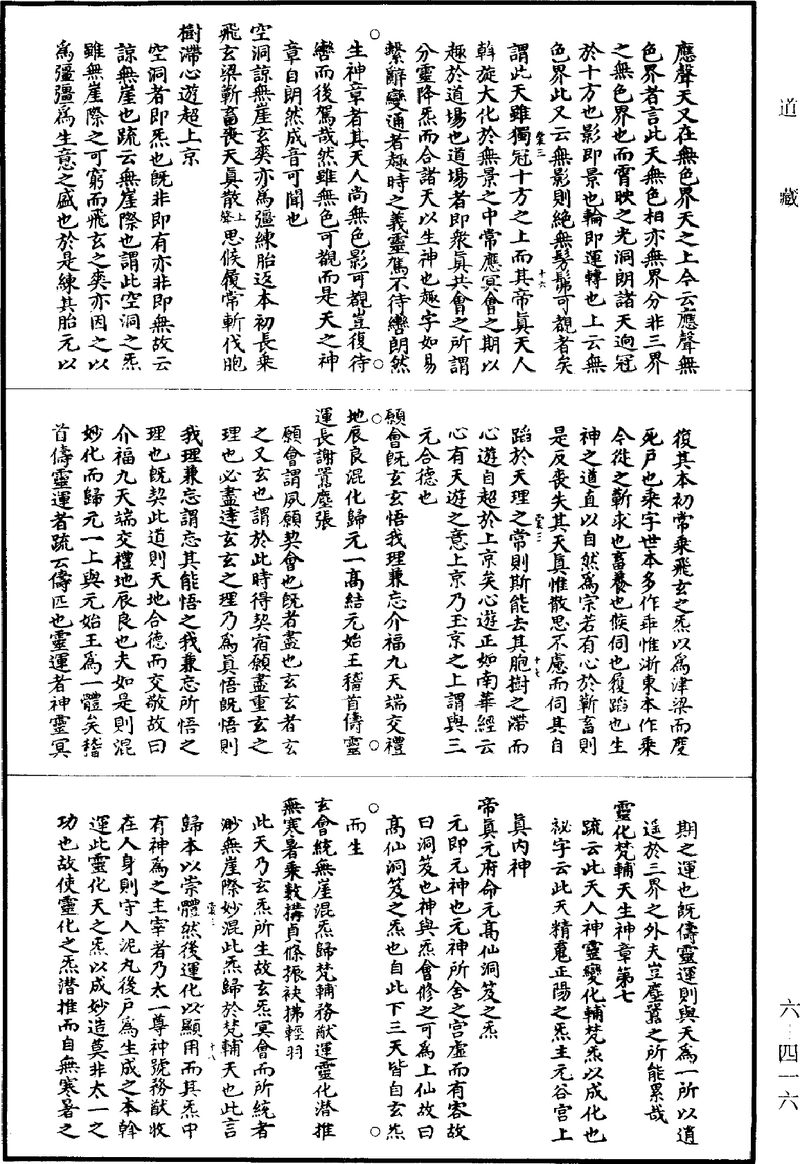 道藏
應聲天又在無色界天之上今云應聲無
色界者言此天無色相亦無界分非三界
之無色界也而霄映之光洞朗諸天逈冠
於十方也影即景也輪即運轉也上云無
色界此又云無影則絶無髣髴可覩者矣
謂此天雖獨冠十方之上而其帝真天人
斡旋大化於無景之中常應冥會之期以
趣於道場也道場者即衆真共會之所謂
分靈降炁而合諸天以生神也趣字如易
繫辭變通者趣時之義靈駕不待轡朗然
生神章者其天人尚無色影可覩豈復待
轡而後駕哉然雖無色可觀而是天之神
章自朗然成音可聞也
空洞諒無崖玄爽亦為彊練胎返本初長乘
飛玄梁靳畜喪天真散上聲思候履常斬伐胞
樹滯心遊超上京
空洞者即炁也既非即有亦非即無故云
諒無崖也疏云無崖際也謂此空洞之炁
雖無崖際之可窮而飛玄之爽亦因之以
為彊彊為生意之盛也於是練其胎元以
復其本初常乘飛玄之炁以為津梁而度
死戶也乘字世本多作乖惟浙東本作乘
今從之靳求也畜養也候伺也履蹈也生
神之道直以自然為宗若有心於靳畜則
是反喪失其天真惟散思不慮而伺其自
蹈於天理之常則斯能去其胞樹之滯而
心遊自超於上京矣心遊正如南華經云
心有天遊之意上京乃玉京之上謂與三
元合德也
願會既玄玄悟我理兼忘介福九天端交禮
地辰良混化歸元一高結元始王稽首儔靈
運長謝囂塵張
願會謂夙願契會也既者盡也玄玄者玄
之又玄也謂於此時得契宿願盡重玄之
理也必盡達玄玄之理乃為真悟既悟則
我理兼忘謂忘其能悟之我兼忘所悟之
理也既契此道則天地合德而交敬故曰
介福九天端交禮地辰良也夫如是則混
妙化而歸元一上與元始王為一體矣稽
首儔靈運者疏云儔匹也靈運者神靈冥
期之運也既儔靈運則與天為一所以逍
遥於三界之外夫豈塵囂之所能累哉
靈化梵輔天生神章第七
疏云此天人神靈變化輔梵炁以成化也
祕字云此天精䰟正陽之炁主元谷宫上
真内神
帝真元府命元高仙洞笈之炁
元即元神也元神所舍之宫虛而有容故
曰洞笈也神與炁會修之可為上仙故曰
高仙洞笈之炁也自此下三天皆自玄炁
而生
玄會統無崖混炁歸梵輔務猷運靈化潛推
無寒暑乘數搆貞條振袂拂輕羽
此天乃玄炁所生故玄炁冥會而所統者
渺無崖際妙混此炁歸於梵輔天也此言
歸本以崇體然後運化以顯用而其炁中
有神為之主宰者乃太一尊神號務猷收
在人身則守入泥丸後戶為生成之本斡
運此靈化天之炁以成妙造莫非太一之
功也故使靈化之炁潛推而自無寒暑之
六—四一六